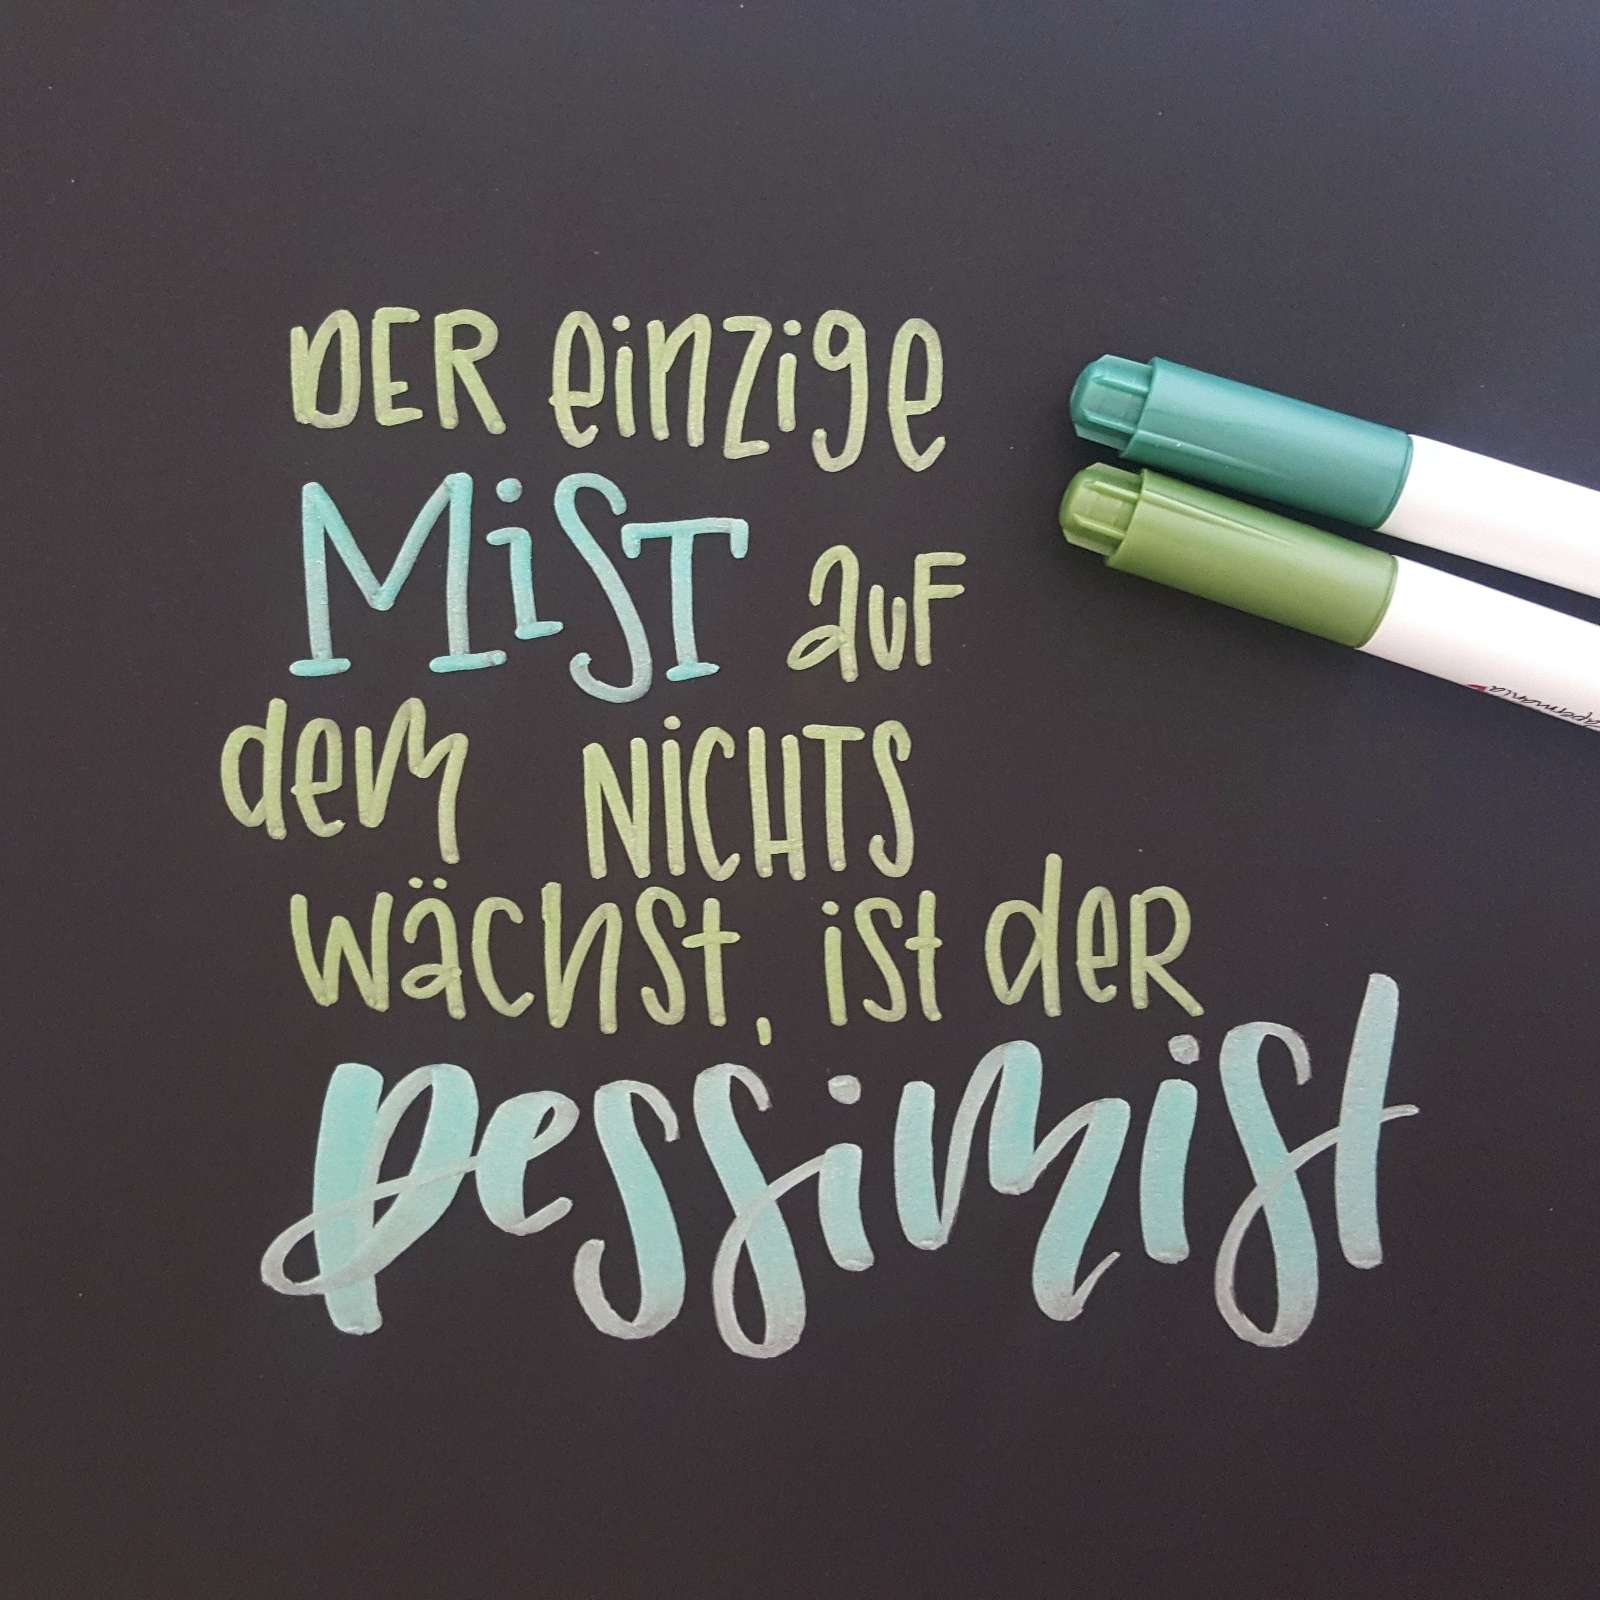 DER einzige
MiST auf
dem NiCHTS
wächst, ist der
pessimist
papermania